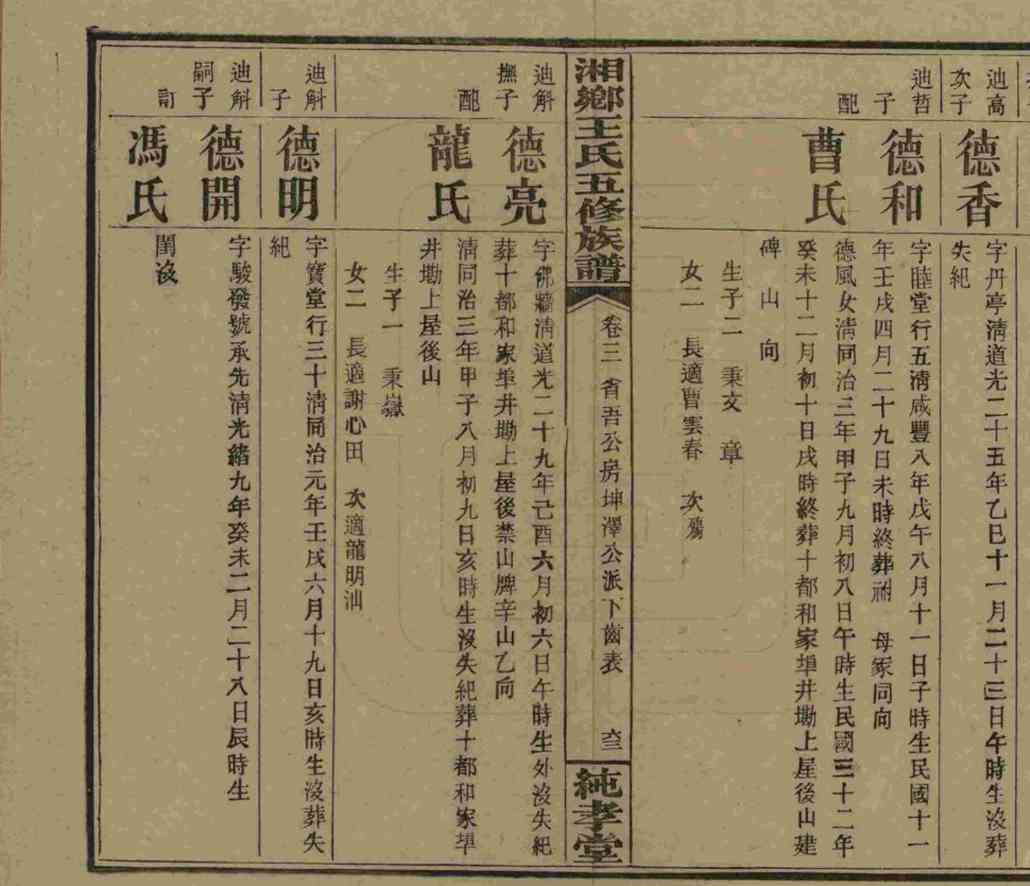 迪高
次子
德香
字丹亭淸道光二十五年乙巳十一月二十三日午時生沒葬
失紀
迪哲
子
德和
字睦堂行五淸咸豐八年戊午八月十一日子時生民國十一
年壬戌四月二十九日未時終葬祔 母冢同向
配
曹氏
德風女淸同治三年甲子九月初八日午時生民國三十二年
癸未十二月初十日戌時終葬十都和家埠井塸上屋後山建
碑 山 向
生子二 秉文 章
女二 長適曹雲春 次殤
湘鄕王氏五修族譜
卷三 省吾公房坤澤公派下齒表 六三
純孝堂
迪斛
撫子
德亮
字佛牆淸道光二十九年己酉六月初六日午時生外沒失紀
葬十都和家埠井塸上屋後禁山牌辛山乙向
配
龍氏
淸同治三年甲子八月初九日亥時生沒失紀葬十都和家埠
井塸上屋後山
生子一 秉嶽
女二 長適謝心田 次適龍明汕
迪斛
子
德明
字寶堂行三十淸同治元年壬戌六月十九日亥時生沒葬失
紀
迪斛
嗣子
德開
字駿發號承先淸光緖九年癸未二月二十八日辰時生
訂
馮氏
閨沒